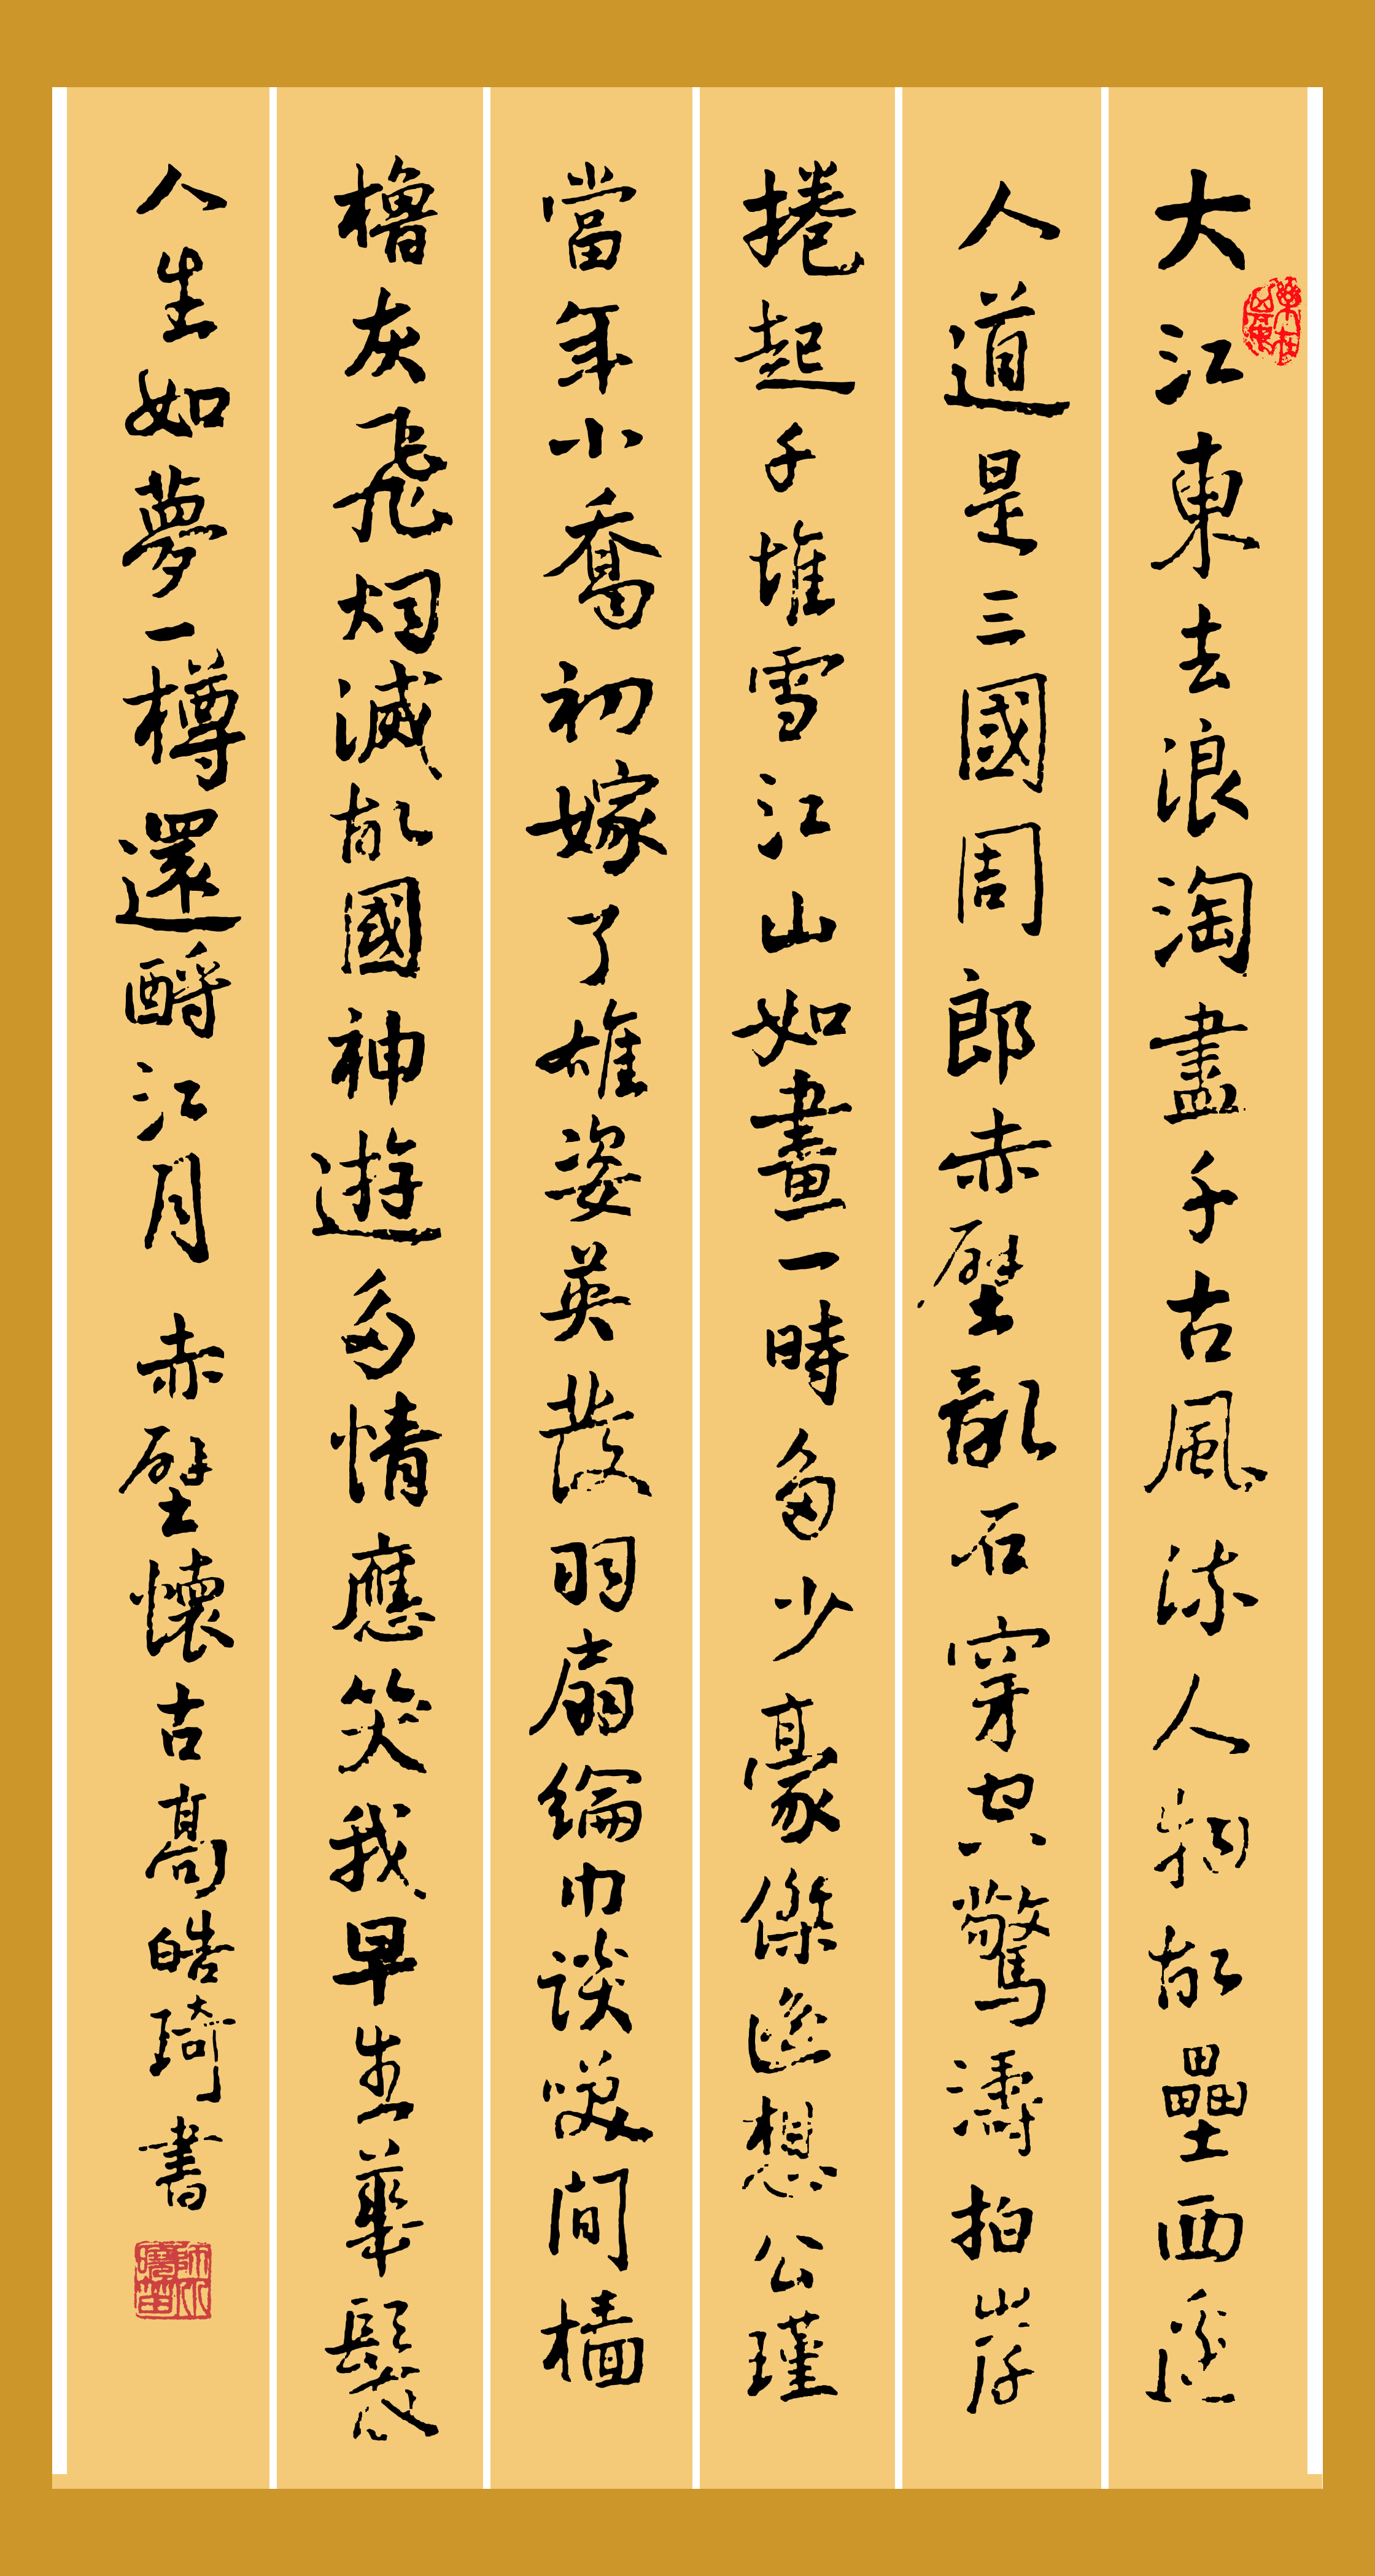 大江東去浪淘盡千古風流人物故壘西邊
人道是三國周郎赤壁亂石穿空驚濤拍岸
捲起千堆雪江山如畫一時多少豪傑遙想公瑾
當年小喬初嫁了雄姿英發羽扇綸巾談笑間檣
櫓灰飛烟滅故國神遊多情應笑我早生華髮
人生如夢一樽還酹江月 赤壁懷古高皓琦書